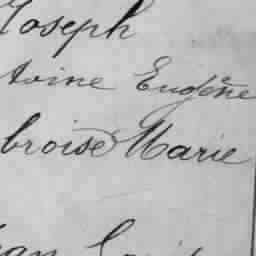 Joseph
toine Eugène
broise Marie